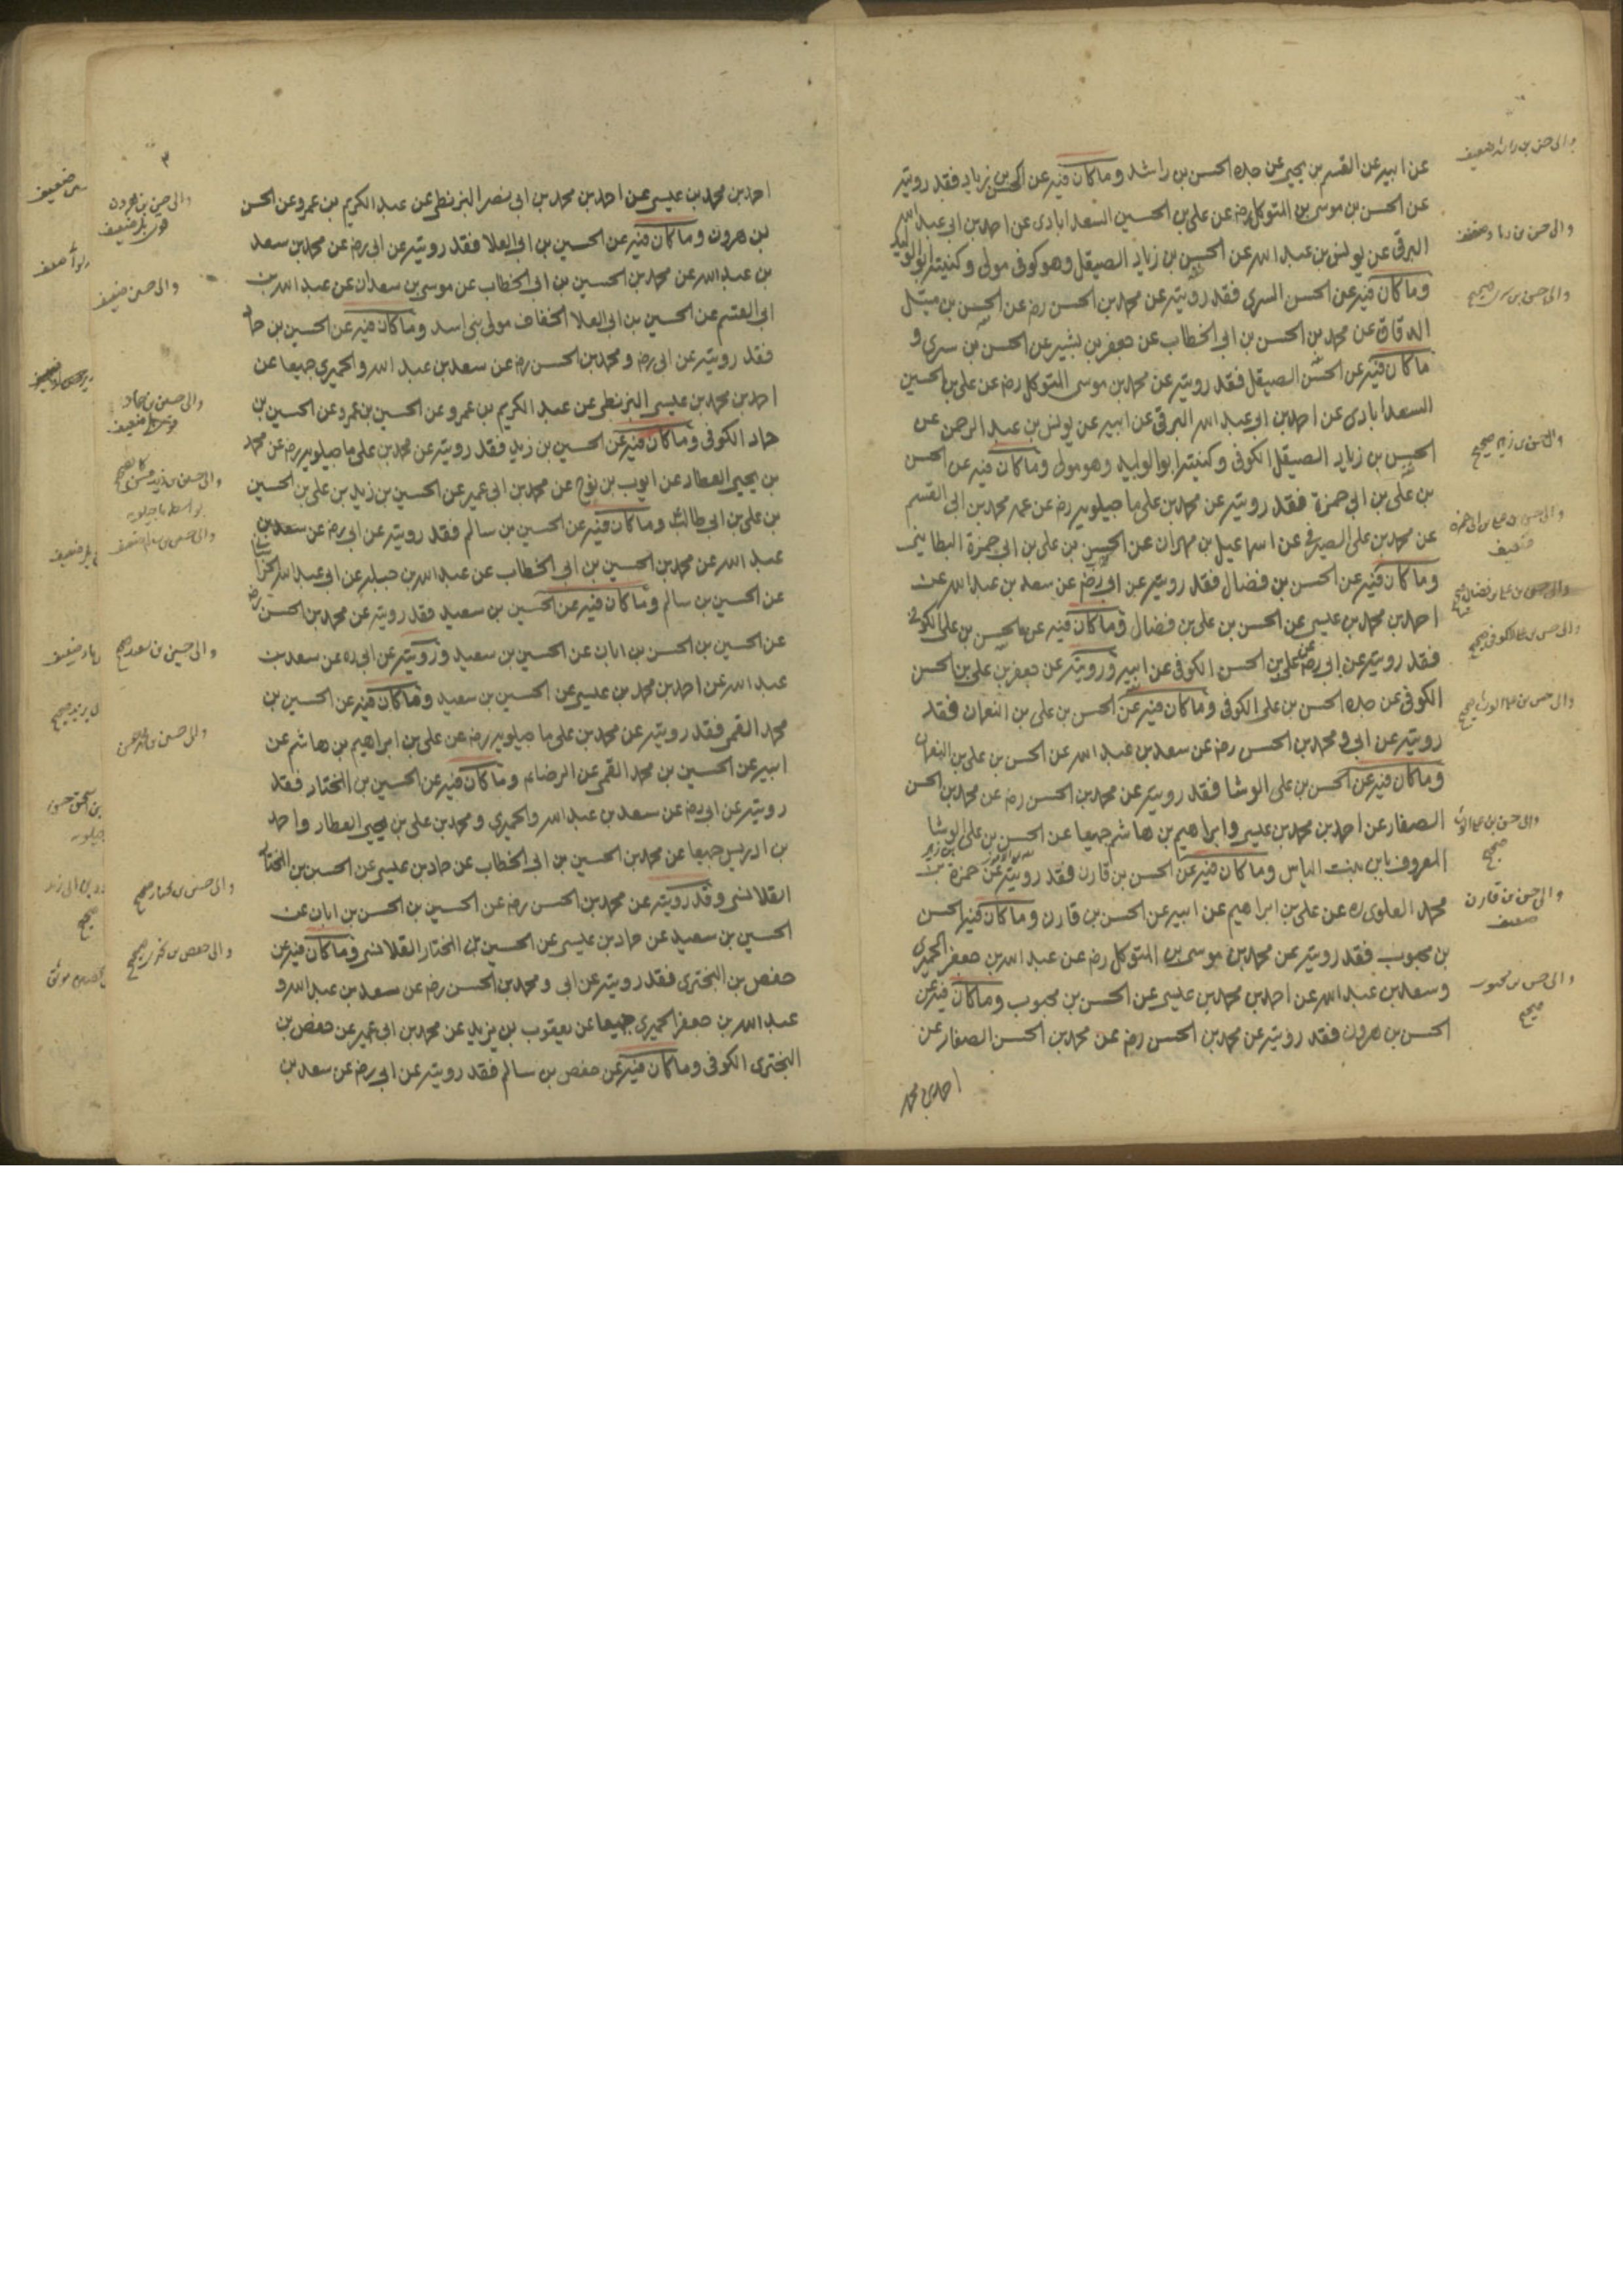 عن ابيه عن القسم بن يحيى عن جده الحسن بن راشد وما كان فيه عن الحسن بن زياد فقد رويته
عن الحسن بن موسى بن المتوكل رضه عن علي بن الحسين السعدابادى عن احمد بن ابى عبد الله
البرقى عن يونس بن عبد الله عن الحسن بن زياد الصيقل وهو كوفى مولى وكنيته ابو الوليد
وما كان فيه عن الحسن السرى فقد رويته عن محمد بن الحسن رضه عن الحسن بن متيل
الدقاق عن محمد بن الحسن بن ابى الخطاب عن جعفر بن بشير عن الحسن بن سرى و
ما كان فيه عن الحسن الصيقل فقد رويته عن محمد بن موسى المتوكل رضه عن على بن الحسين
السعدابادى عن احمد بن ابو عبد الله البرقى عن ابيه عن يونس بن عبد الرحمن عن
الحسن بن زياد الصيقل الكوفى وكنيته ابو الوليد وهو مولى وما كان فيه عن الحسن
بن على بن ابى حمزة فقد رويته عن محمد بن على ما جيلويه رضه عن عمه محمد بن ابى القسم
عن محمد بن على الصيرفى عن اسماعيل بن مهران عن الحسن بن على بن ابى حمزة البطاينى
وما كان فيه عن الحسن بن فضال فقد رويته عن ابى رضه عن سعد بن عبد الله عن
احمد بن محمد بن عيسى عن الحسن بن على بن فضال وما كان فيه عن الحسن بن على الكوفى
فقد رويته عن ابى رضه عن على بن الحسن الكوفى عن ابيه ورويته عن جعفر بن على بن الحسن
الكوفى عن جده الحسن بن على الكوفى وما كان فيه عن الحسن بن على بن النعمان فقد
رويته عن ابى و محمد بن الحسن رضه عن سعد بن عبد الله عن الحسن بن على بن النعمان
وما كان فيه عن الحسن بن على الوشا فقد رويته عن محمد بن الحسن رضه عن محمد بن الحسن
الصفار عن احمد بن محمد بن عيسى وابراهيم بن هاشم جميعا عن الحسن بن على الوشا
المعروف بابن بنت الياس وما كان فيه عن الحسن بن قارن فقد رويته عن حمزة بن
محمد العلوى ره عن على بن ابراهيم عن ابيه عن الحسن بن قارن وما كان فيه الحسن
بن محبوب فقد رويته عن محمد بن موسى بن المتوكل رضه عن عبد الله بن جعفر الحميرى
وسعد بن عبد الله عن احمد بن محمد بن عيسى عن الحسن بن محبوب وما كان فيه عن
الحسن بن هرون فقد رويته عن محمد بن الحسن رضه عن محمد بن الحسن الصفار عن
احمد بن محمد
والى حسن بن راشد ضعيف
والى حسن بن زياد ضعيف
والى حسن بن سرى صحيح
والى حسن بن على بن ابى حمزه
ضعيف
والى حسن بن على الكوفى صحيح
والى حسن بن على الوشا
صحيح
والى حسن بن قارن
ضعيف
والى حسن بن محبوب
صحيح
٣
احمد بن محمد بن عيسى عن احمد بن محمد بن ابى نصر البزنطى عن عبد الكريم بن عمرو عن الحسن
بن هرون وما كان فيه عن الحسين بن ابى العلا فقد رويته عن ابى رضه عن محمد بن سعد
بن عبد الله عن محمد بن الحسين بن ابى الخطاب عن موسى بن سعدان عن عبد الله بن
ابى القسم عن الحسين بن ابى العلا الخفاف مولى بنى اسد وما كان فيه عن الحسين بن حماد
فقد رويته عن ابى رضه و محمد بن الحسن رضه عن سعد بن عبد الله والحميرى جميعا عن
احمد بن محمد بن عيسى البزنطى عن عبد الكريم بن عمرو عن الحسين بن عمرو عن الحسين بن
حماد الكوفى وما كان فيه عن الحسين بن زيد فقد رويته عن محمد بن على ما جيلويه رضه عن محمد
بن يحيى العطار عن ايوب بن نوح عن محمد بن ابى عمير عن الحسين بن زيد بن على بن الحسين
بن على بن ابى طالب وما كان فيه عن الحسين بن سالم فقد رويته عن ابى رضه عن سعد بن
عبد الله عن محمد بن الحسين بن ابى الخطاب عن عبد الله بن جبله عن ابى عبد الله الخراسانى
عن الحسين بن سالم وما كان فيه عن الحسين بن سعيد فقد رويته عن محمد بن الحسن رضه
عن الحسين بن الحسن بن ابان عن الحسين بن سعيد ورويته عن ابى ره عن سعد بن
عبد الله عن احمد بن محمد بن عيسى عن الحسين بن سعيد وما كان فيه عن الحسين بن
محمد القمى فقد رويته عن محمد بن على ما جيلويه رضه عن على بن ابراهيم بن هاشم عن
ابيه عن الحسين بن محمد القمى عن الرضا عم وما كان فيه عن الحسين بن المختار فقد
رويته عن ابى رضه عن سعد بن عبد الله والحميرى و محمد بن على بن يحيى العطار واحمد
بن ادريس جميعا عن محمد بن الحسين بن ابى الخطاب عن حماد بن عيسى عن الحسين بن المختار
القلانسى وقد رويته عن محمد بن الحسن رضه عن الحسين بن الحسن بن ابان عن
الحسين بن سعيد عن حماد بن عيسى عن الحسين بن المختار القلانسى وما كان فيه عن
حفص بن البخترى فقد رويته عن ابى و محمد بن الحسن رضه عن سعد بن عبد الله و
عبد الله بن جعفر الحميرى جميعا عن يعقوب بن يزيد عن محمد بن ابى عمير عن حفص بن
البخترى الكوفى وما كان فيه عن حفص بن سالم فقد رويته عن ابى رضه عن سعد بن
والى حسن بن هرون
والى حسين ضعيف
والى حسين بن حماد
والى حسين بن سعيد صحيح
والى حسين بن مختار صحيح